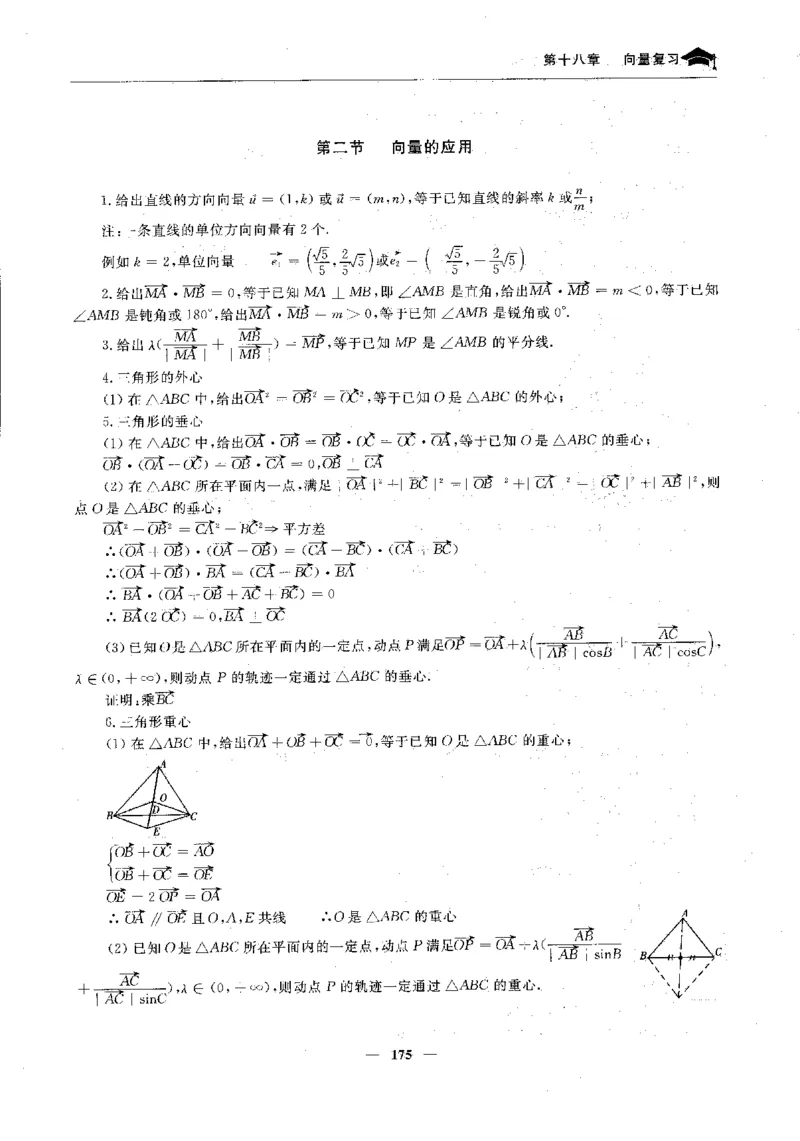 第十八章 向量复习
第二节 向量的应用
1.给出直线的方向向量 $\vec{u}=(1,k)$ 或 $\vec{u}=(m,n)$,等于已知直线的斜率 $k$ 或 $\frac{n}{m}$;
注:一条直线的单位方向向量有 2 个.
例如 $k=2$,单位向量 $\vec{e_1}=\left(\frac{\sqrt{5}}{5},\frac{2}{5}\sqrt{5}\right)$ 或 $\vec{e_2}=\left(-\frac{\sqrt{5}}{5},-\frac{2}{5}\sqrt{5}\right)$
2.给出$\overrightarrow{MA}\cdot\overrightarrow{MB}=0$,等于已知 $MA\perp MB$,即 $\angle AMB$ 是直角,给出$\overrightarrow{MA}\cdot\overrightarrow{MB}=m<0$,等于已知
$\angle AMB$ 是钝角或 180°,给出$\overrightarrow{MA}\cdot\overrightarrow{MB}=m>0$,等于已知 $\angle AMB$ 是锐角或 0°.
3.给出 $\lambda(\frac{\overrightarrow{MA}}{|\overrightarrow{MA}|}+\frac{\overrightarrow{MB}}{|\overrightarrow{MB}|})=\overrightarrow{MP}$,等于已知 $MP$ 是 $\angle AMB$ 的平分线.
4.三角形的外心
(1)在 $\triangle ABC$ 中,给出$\overrightarrow{OA}^2=\overrightarrow{OB}^2=\overrightarrow{OC}^2$,等于已知 $O$ 是 $\triangle ABC$ 的外心;
5.三角形的垂心
(1)在 $\triangle ABC$ 中,给出$\overrightarrow{OA}\cdot\overrightarrow{OB}=\overrightarrow{OB}\cdot\overrightarrow{OC}=\overrightarrow{OC}\cdot\overrightarrow{OA}$,等于已知 $O$ 是 $\triangle ABC$ 的垂心;
$\overrightarrow{OB}\cdot(\overrightarrow{OA}-\overrightarrow{OC})=\overrightarrow{OB}\cdot\overrightarrow{CA}=0,\overrightarrow{OB}\perp\overrightarrow{CA}$
(2)在 $\triangle ABC$ 所在平面内一点,满足 $|\overrightarrow{OA}|^2+|\overrightarrow{BC}|^2=|\overrightarrow{OB}|^2+|\overrightarrow{CA}|^2=|\overrightarrow{OC}|^2+|\overrightarrow{AB}|^2$,则
点 $O$ 是 $\triangle ABC$ 的垂心;
$\overrightarrow{OA}^2-\overrightarrow{OB}^2=\overrightarrow{CA}^2-\overrightarrow{BC}^2\Rightarrow$ 平方差
$\therefore(\overrightarrow{OA}+\overrightarrow{OB})\cdot(\overrightarrow{OA}-\overrightarrow{OB})=(\overrightarrow{CA}-\overrightarrow{BC})\cdot(\overrightarrow{CA}+\overrightarrow{BC})$
$\therefore(\overrightarrow{OA}+\overrightarrow{OB})\cdot\overrightarrow{BA}=(\overrightarrow{CA}-\overrightarrow{BC})\cdot\overrightarrow{BA}$
$\therefore\overrightarrow{BA}\cdot(\overrightarrow{OA}+\overrightarrow{OB}+\overrightarrow{AC}+\overrightarrow{BC})=0$
$\therefore\overrightarrow{BA}(2\overrightarrow{OC})=0,\overrightarrow{BA}\perp\overrightarrow{OC}$
(3)已知 $O$ 是 $\triangle ABC$ 所在平面内的一定点,动点 $P$ 满足$\overrightarrow{OP}=\overrightarrow{OA}+\lambda\left(\frac{\overrightarrow{AB}}{|\overrightarrow{AB}|\cos B}+\frac{\overrightarrow{AC}}{|\overrightarrow{AC}|\cos C}\right)$,
$\lambda\in(0,+\infty)$,则动点 $P$ 的轨迹一定通过 $\triangle ABC$ 的垂心.
证明:乘$\overrightarrow{BC}$
6.三角形重心
(1)在 $\triangle ABC$ 中,给出$\overrightarrow{OA}+\overrightarrow{OB}+\overrightarrow{OC}=\vec{0}$,等于已知 $O$ 是 $\triangle ABC$ 的重心;
A
O
B D C
E
$\begin{cases}\overrightarrow{OB}+\overrightarrow{OC}=\overrightarrow{AO}\\\overrightarrow{OB}+\overrightarrow{OC}=\overrightarrow{OE}\end{cases}$
$\overrightarrow{OE}=2\overrightarrow{OP}=\overrightarrow{OA}$
$\therefore\overrightarrow{OA}\parallel\overrightarrow{OE}$ 且 $O,A,E$ 共线 $\therefore O$ 是 $\triangle ABC$ 的重心
(2)已知 $O$ 是 $\triangle ABC$ 所在平面内的一定点,动点 $P$ 满足$\overrightarrow{OP}=\overrightarrow{OA}+\lambda(\frac{\overrightarrow{AB}}{|\overrightarrow{AB}|\sin B}$
$+\frac{\overrightarrow{AC}}{|\overrightarrow{AC}|\sin C}),\lambda\in(0,+\infty)$,则动点 $P$ 的轨迹一定通过 $\triangle ABC$ 的重心.
A
B C
— 175 —